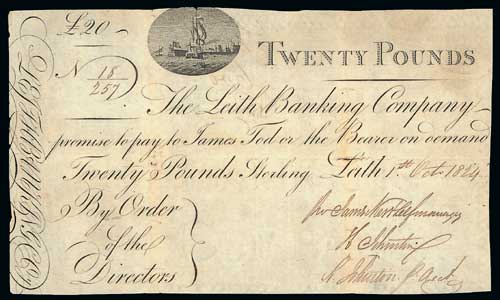 £20
TWENTY POUNDS
N 18/257
The Leith Banking Company
promise to pay to James Tod or the Bearer on demand
Twenty Pounds Sterling Leith 1st Octr 1824
By Order
of the
Directors